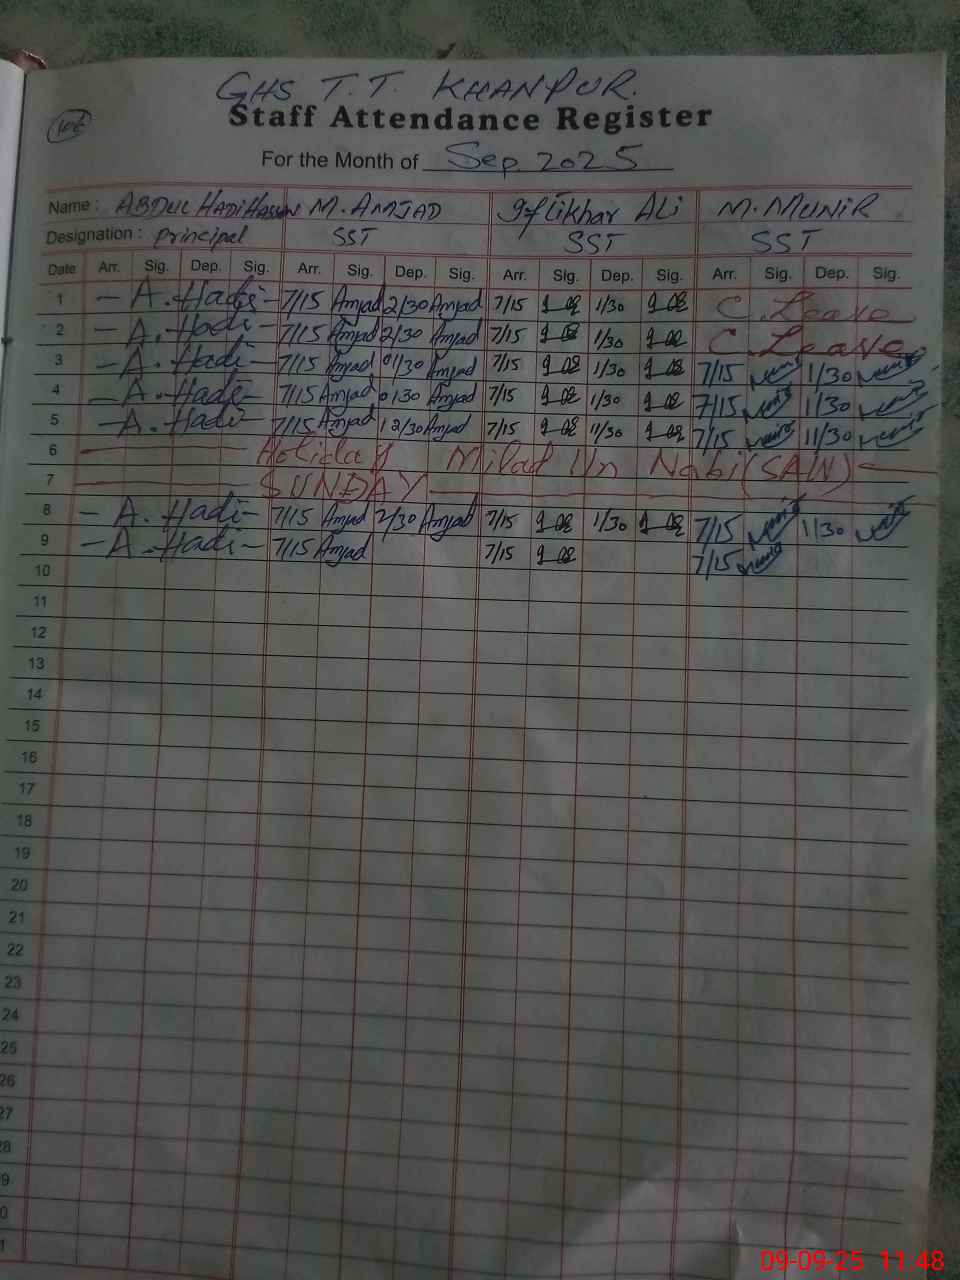 GHS T.T. KHANPUR.
Staff Attendance Register
For the Month of Sep. 2025
Name: ABDUL HADI HASSAN M. AMJAD Iftikhar ALi M. MUNIR
Designation: principal SST SST SST
Date Arr. Sig. Dep. Sig. Arr. Sig. Dep. Sig. Arr. Sig. Dep. Sig. Arr. Sig. Dep. Sig.
1 — A. Hadi — 7/15 Amjad 2/30 Amjad 7/15 1/30 C. Leave
2 — A. Hadi — 7/15 Amjad 2/30 Amjad 7/15 1/30 C. Leave
3 — A. Hadi — 7/15 Amjad 01/30 Amjad 7/15 1/30 7/15 1/30
4 — A. Hadi — 7/15 Amjad 0130 Amjad 7/15 1/30 7/15 1/30
5 — A. Hadi — 7/15 Amjad 12/30 Amjad 7/15 11/30 7/15 11/30
6 Holiday Milad Un Nabi (SAW)
7 SUNDAY
8 — A. Hadi — 7/15 Amjad 2/30 Amjad 7/15 1/30 7/15 1/30
9 — A. Hadi — 7/15 Amjad 7/15 7/15
10
11
12
13
14
15
16
17
18
19
20
21
22
23
24
25
26
27
28
9
0
1
09-09-25 11:48